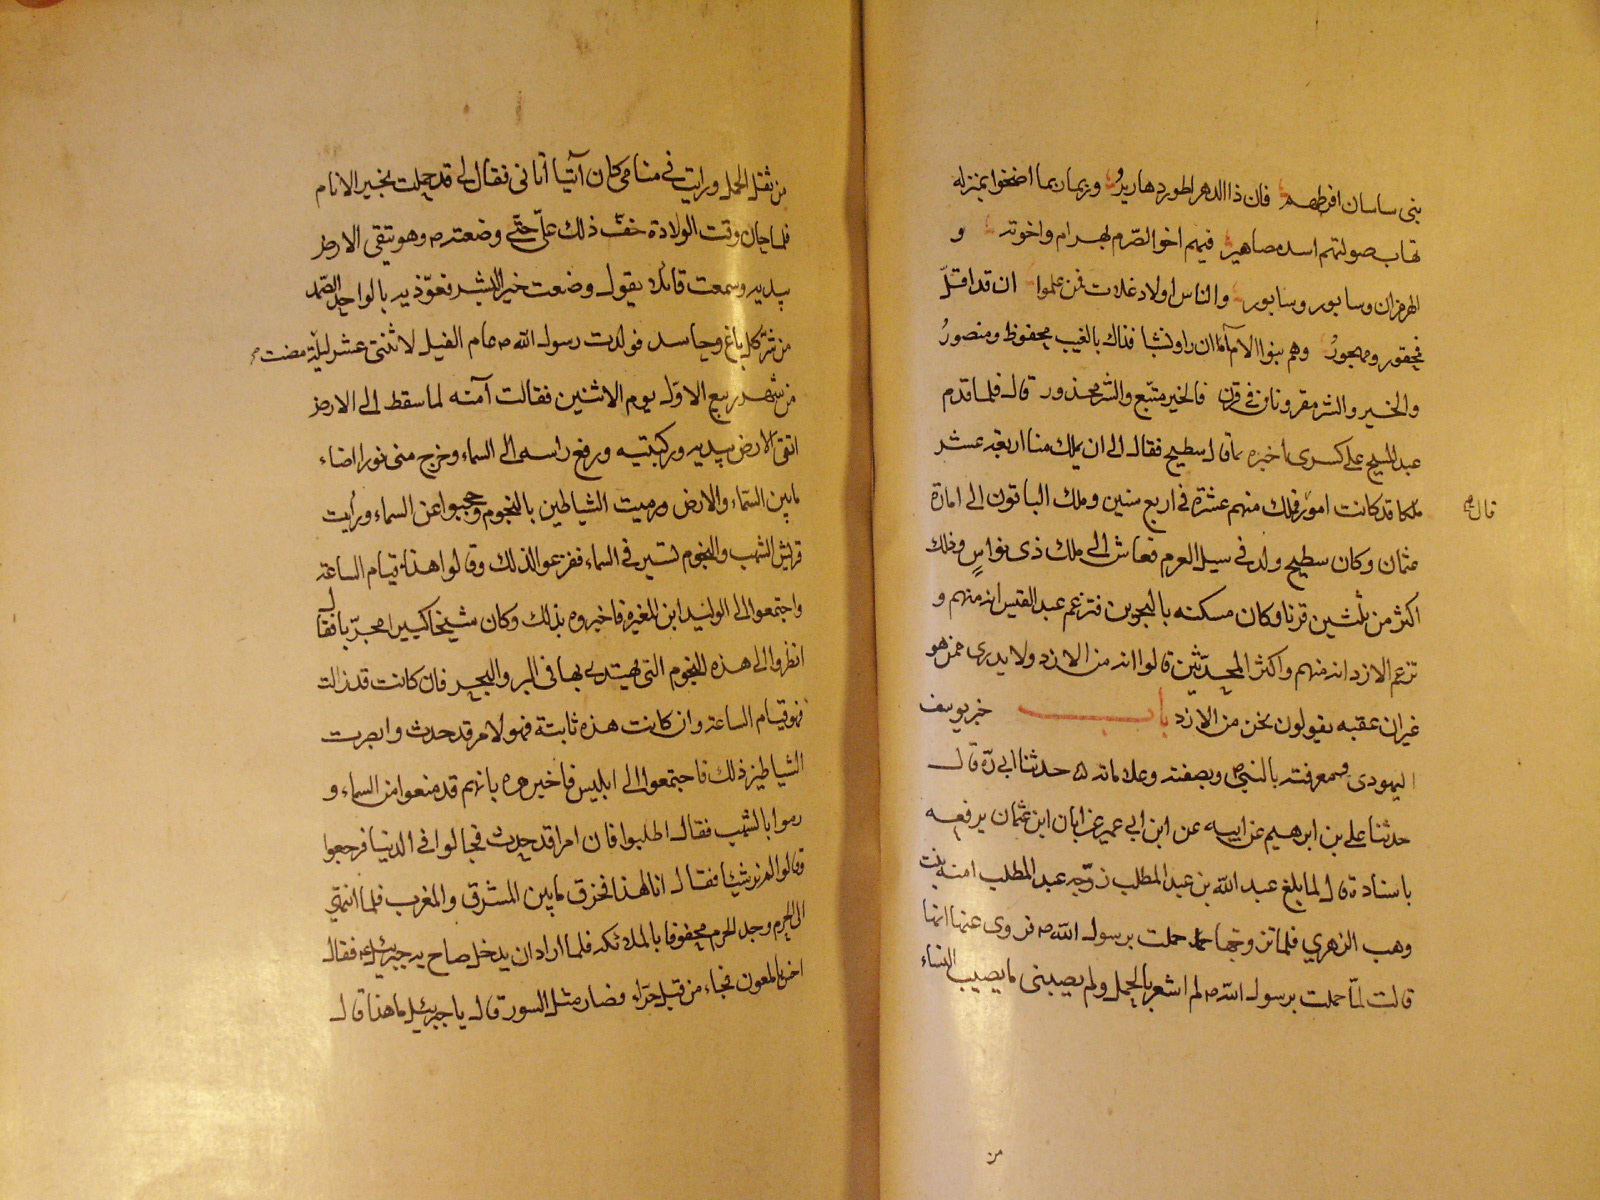 بنى ساسان افرطهم فان ذا الدهر اطورد هارير وربما ربما اضحوا بمنزله
تهاب صولتهم اسد مصاهير فيهم اخو الصرم بهرام واخوته و
الهرمزان وسابور وسابور والناس اولاد علات فمن علموا ان قد اقلّ
فمحقور ومهجور وهم بنوا الام اما ان راو نشبا فذاك بالغيب محفوظ ومنصور
والخير والشر مقرونان فى قرن فالخير متبع والشر محذور قال فلما قدم
عبد المسيح على كسرى اخبره بما قال سطيح فقال الى ان يملك منا اربعة عشر
ملكا قد كانت امور فملك منهم عشرة فى اربع سنين وملك الباقون الى امارة
قال
عثمان وكان سطيح ولد فى سيل العرم فعاش الى ملك ذى نواس وذلك
اكثر من ثلثين قرنا وكان مسكنه بالبحرين فتزعم عبد القيس انه منهم و
تزعم الازد انه منهم واكثر المحدّثين قالوا انه من الازد ولا يدرى ممن هو
غير ان عقبه يقولون نحن من الازد باب خبر يوسف
اليهودى فمعرفته بالنبى ص وبصفته وعلاماته حدثنا ابى ره قال
حدثنا على بن ابرهيم عن ابيه عن ابن ابى عمير عن ابان ابن عثمان يرفعه
باسناده قال لما بلغ عبد الله بن عبد المطلب زوّجه عبد المطلب امنه بنت
وهب الزهري فلما تزوجها حملت برسول الله ص فروى عنها انها
قالت لمّا حملت برسول الله ص لم اشعر بالحمل ولم يصيبنى ما يصيب النساء
من
من ثقل الحمل ورايت فى منامى كان آتيا اتانى فقال لى قد حملت بخير الانام
فلما حان وقت الولادة خفّ ذلك علىّ حتى وضعته ص وهو يتقى الارض
بيديه وسمعت قائلا يقول وضعت خير البشر فعوّذيه بالواحد الصمد
من شرّ كل باغ وحاسد فولدت رسول الله ص عام الفيل لاثنتى عشر ليلة مضت
من شهر ربيع الاول يوم الاثنين فقالت آمنه لما سقط الى الارض
اتقى الارض بيديه وركبتيه ورفع راسه الى السماء وخرج منى نورا اضاء
مابين السماء والارض ورميت الشياطين بالنجوم وحجبوا عن السماء ورايت
قريش الشهب والنجوم تسير فى السماء ففزعوا لذلك وقالوا هذا قيام الساعة
واجتمعوا الى الوليد ابن المغيرة فاخبروه بذلك وكان شيخا كبيرا مجرّبا فقال
انظروا الى هذه النجوم التى يهتدى بها فى البر والبحر فان كانت قد زالت
فهو قيام الساعة وان كانت هذه ثابتة فهو لامر قد حدث وابصرت
الشياطين ذلك فاجتمعوا الى ابليس فاخبروه بانهم قد منعوا من السماء و
رموا بالشهب فقال اطلبوا فان امرا قد حدث فجالوا فى الدنيا فرجعوا
وقالوا لم نر شيئا فقال انا لهذا فخرق مابين المشرق والمغرب فلما انتهى
الى الحرم وجد الحرم محفوفا بالملائكه فلما اراد ان يدخل صاح به جبرئيل ع فقال
اخس يا ملعون فجاء من قبل حراء فصار مثل السور قال يا جبرئيل ما هذا قال